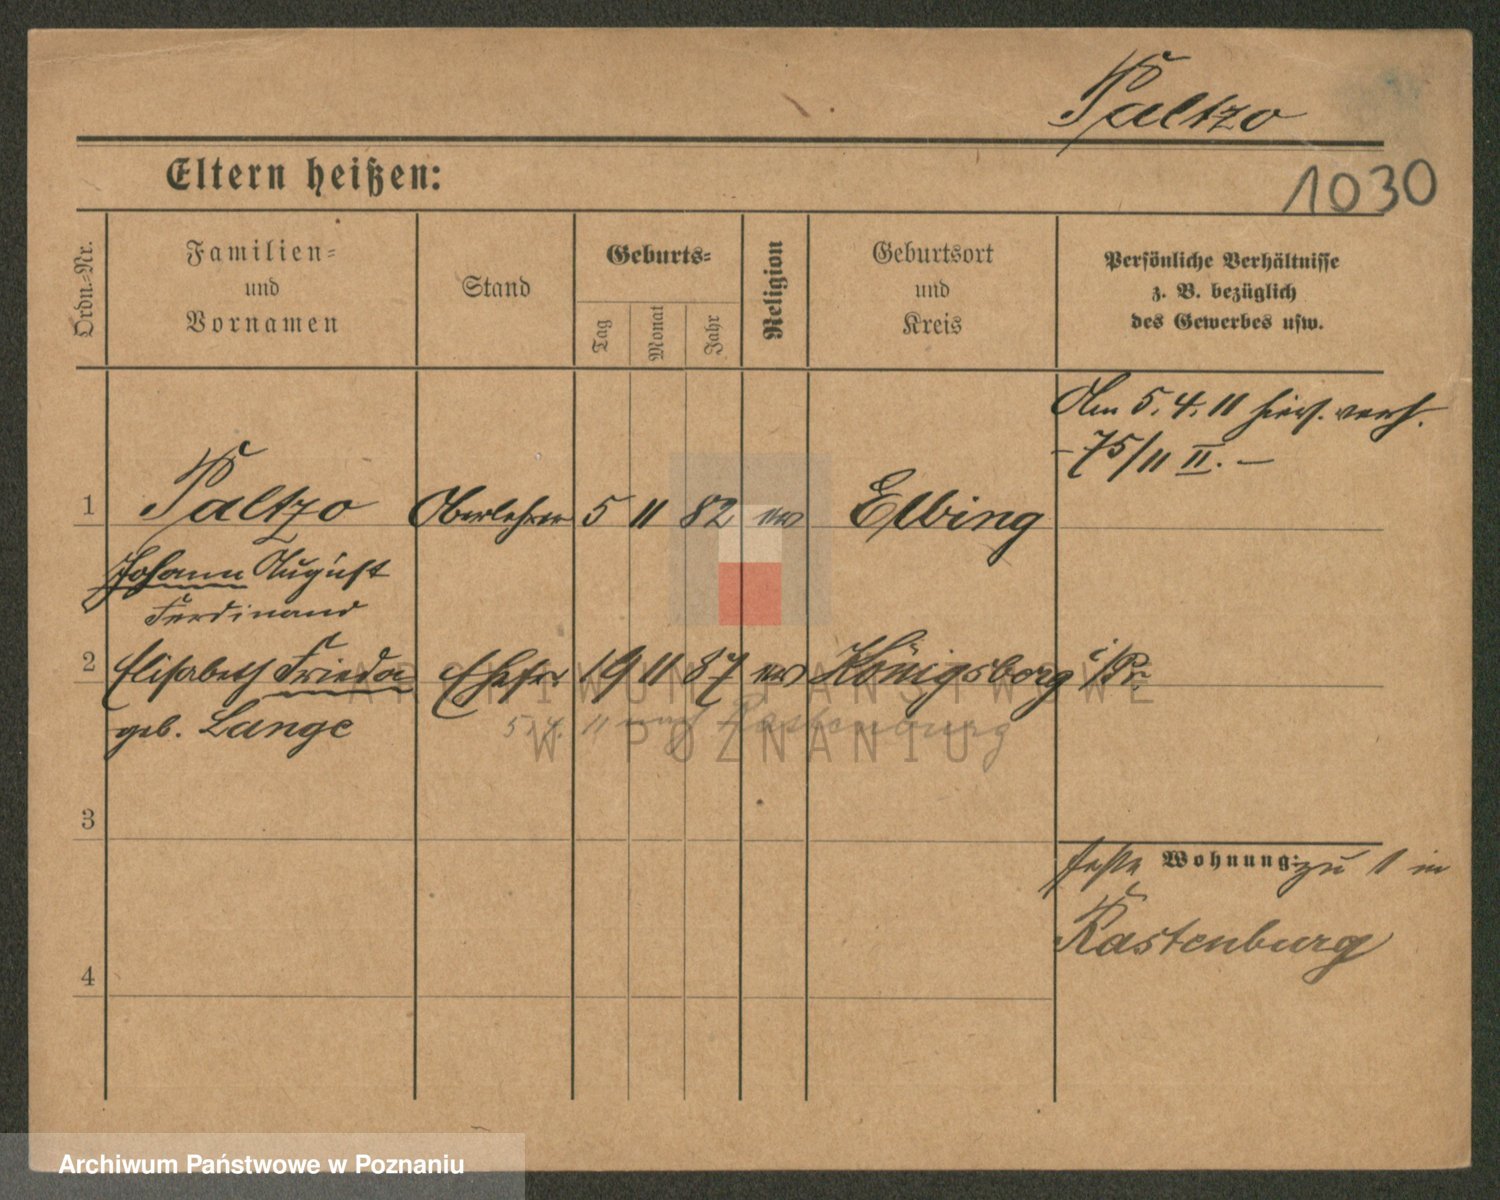 Paltzo
1030
Eltern heißen:
Ordn.-Nr.
Familien-
und
Vornamen
Stand
Geburts-
Tag
Monat
Jahr
Religion
Geburtsort
und
Kreis
Persönliche Verhältnisse
z. B. bezüglich
des Gewerbes usw.
Am 5.4.11 hiers. verh.
-75/11 II. -
1 Paltzo Oberlehrer 5 11 82 ev Elbing
Johann August
Ferdinand
2 Elisabeth Frieda Ehefr 19 11 87 ev Königsberg i/Pr.
geb. Lange
5.4. 11 nach Rastenburg
3
feste Wohnung: zu 1 in
Rastenburg
4
ARCHIWUM PAŃSTWOWE
W POZNANIU
Archiwum Państwowe w Poznaniu